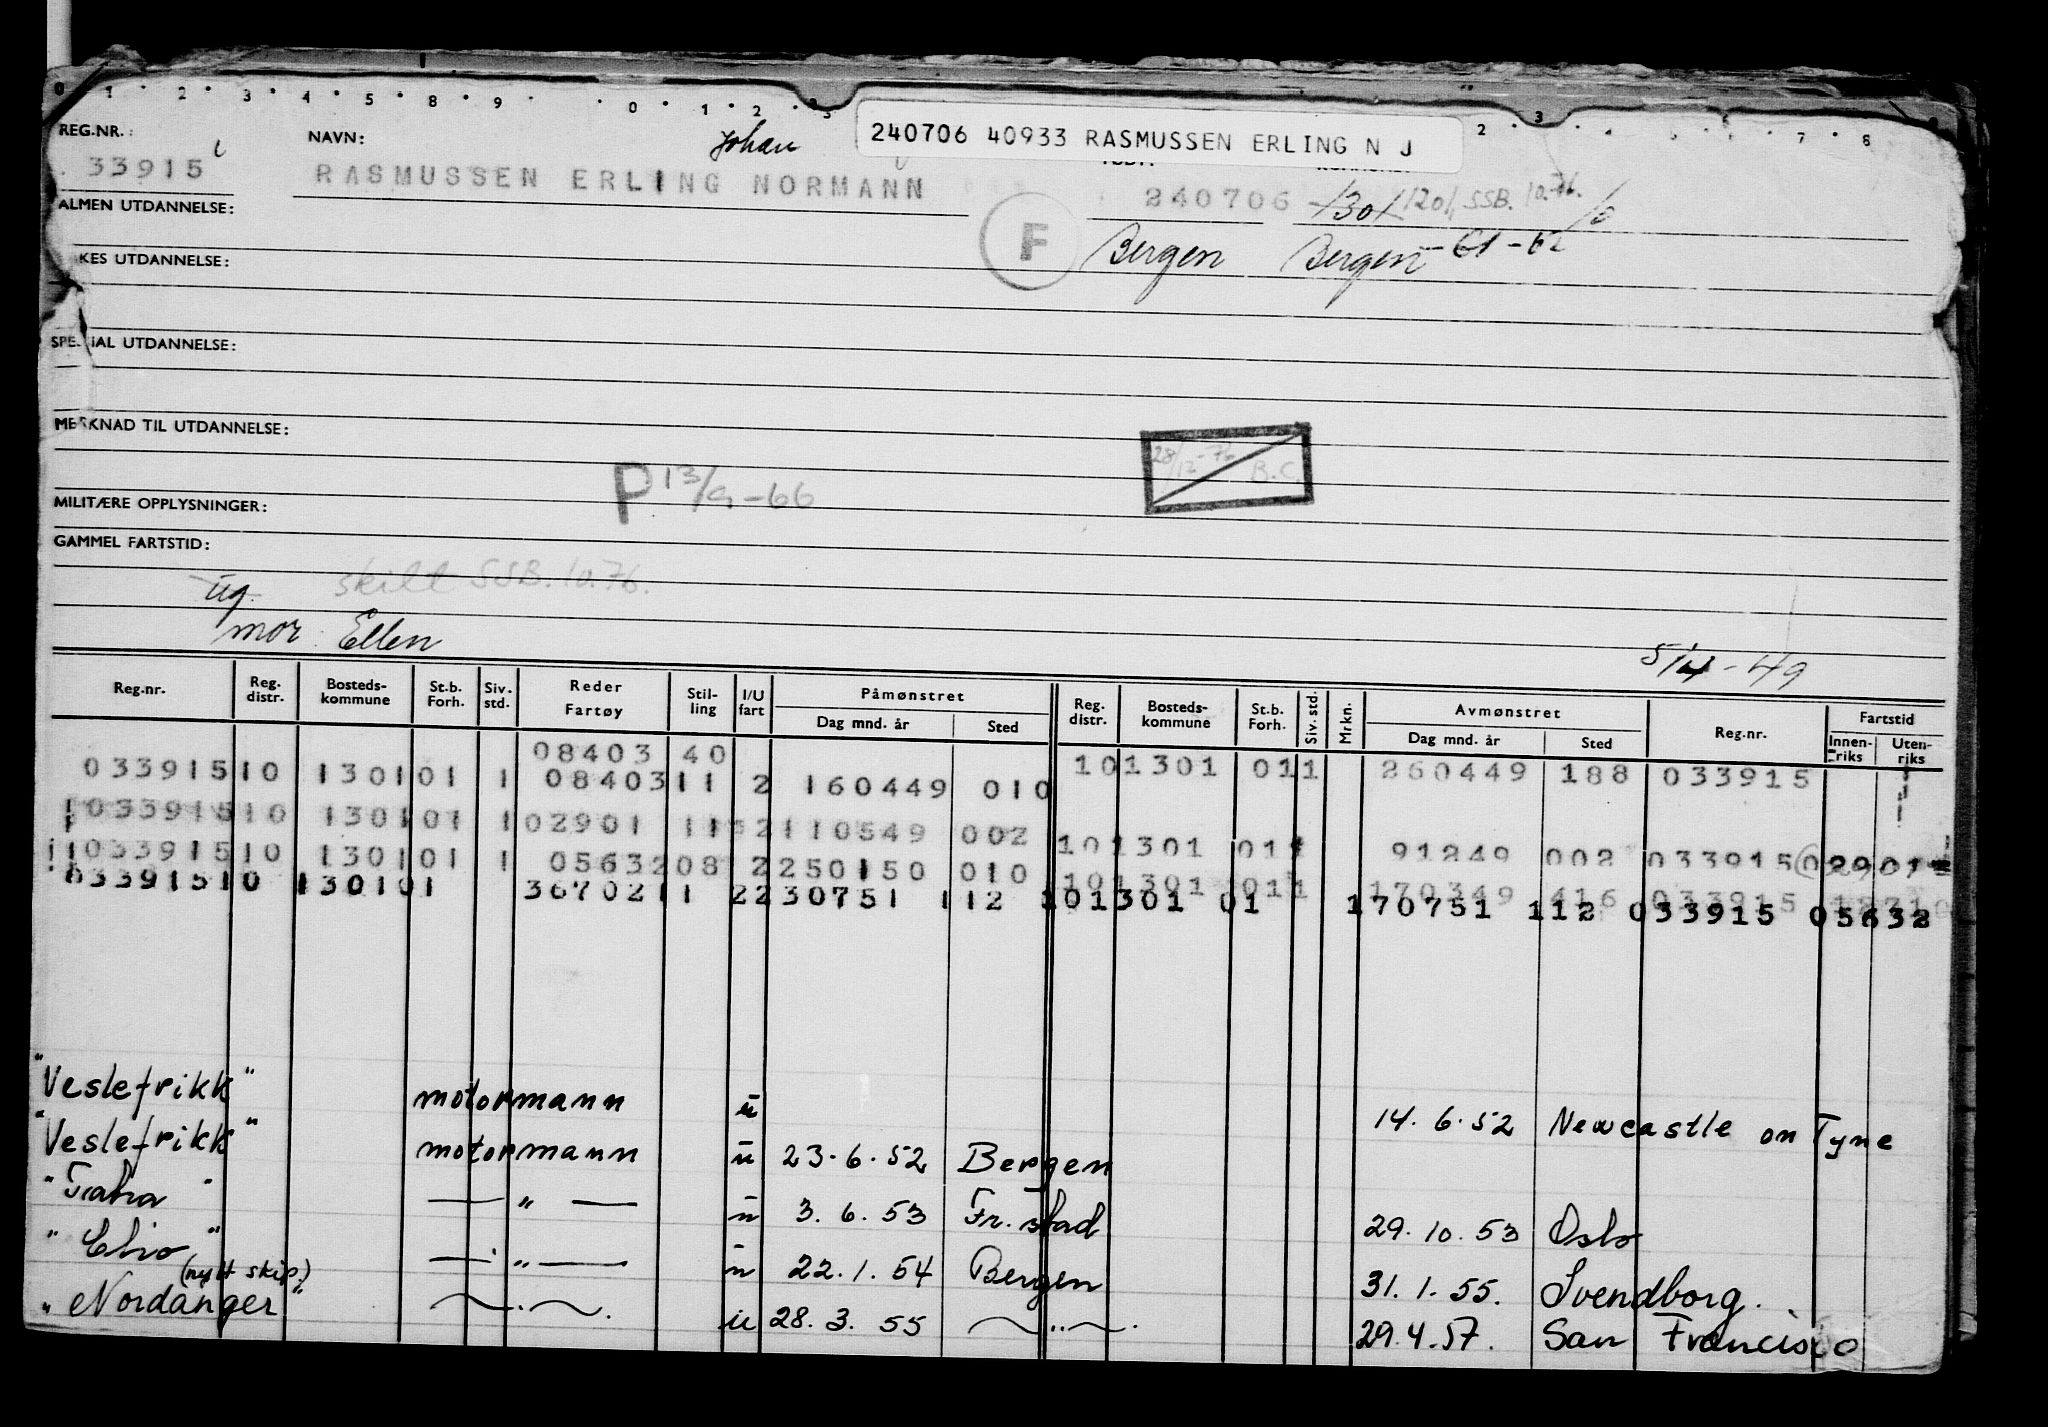 0 1 2 3 4 5 8 9 0 1 2 3 2 3 4 6 7 8
240706 40933 RASMUSSEN ERLING N J
REG.NR.: NAVN: Johan
33915 RASMUSSEN ERLING NORMANN 240706 1301 1201, SSB. 10.76.
ALMEN UTDANNELSE:
F Bergen Bergen - 61-62
KES UTDANNELSE:
SPESIAL UTDANNELSE:
MERKNAD TIL UTDANNELSE:
28/12-76 B.C.
P 13/9-66
MILITÆRE OPPLYSNINGER:
GAMMEL FARTSTID:
ug. skilt SSB. 10.76.
mor: Ellen
5/4-49
Reg.nr. Reg. distr. Bosteds-kommune St.b. Forh. Siv. std. Reder Fartøy Stil-ling I/U fart Påmønstret Dag mnd. år Sted Reg. distr. Bosteds-kommune St.b. Forh. Siv. std. Mrkn. Avmønstret Dag mnd. år Sted Reg.nr. Fartstid Innen-riks Uten-riks
08403 40
033915 10 1301 01 1 08403 11 2 160449 010 10 1301 01 1 260449 188 033915
033915 10 1301 01 1 02901 11 2 110549 002 10 1301 01 1 91249 002 033915 02901
033915 10 1301 01 1 05632 08 2 250150 010 10 1301 01 1 170349 416 033915
033915 10 1301 01 36702 11 2 230751 112 10 1301 01 170751 112 033915 05632
"Veslefrikk" motormann u 14.6.52 Newcastle on Tyne
"Veslefrikk" motormann u 23.6.52 Bergen
" " — " — u 3.6.53 Fr.stad 29.10.53 Oslo
"Clio" — " — u 22.1.54 Bergen 31.1.55. Svendborg.
(nytt skip)
"Nordanger" — " — u 28.3.55 — " — 29.4.57. San Francisco